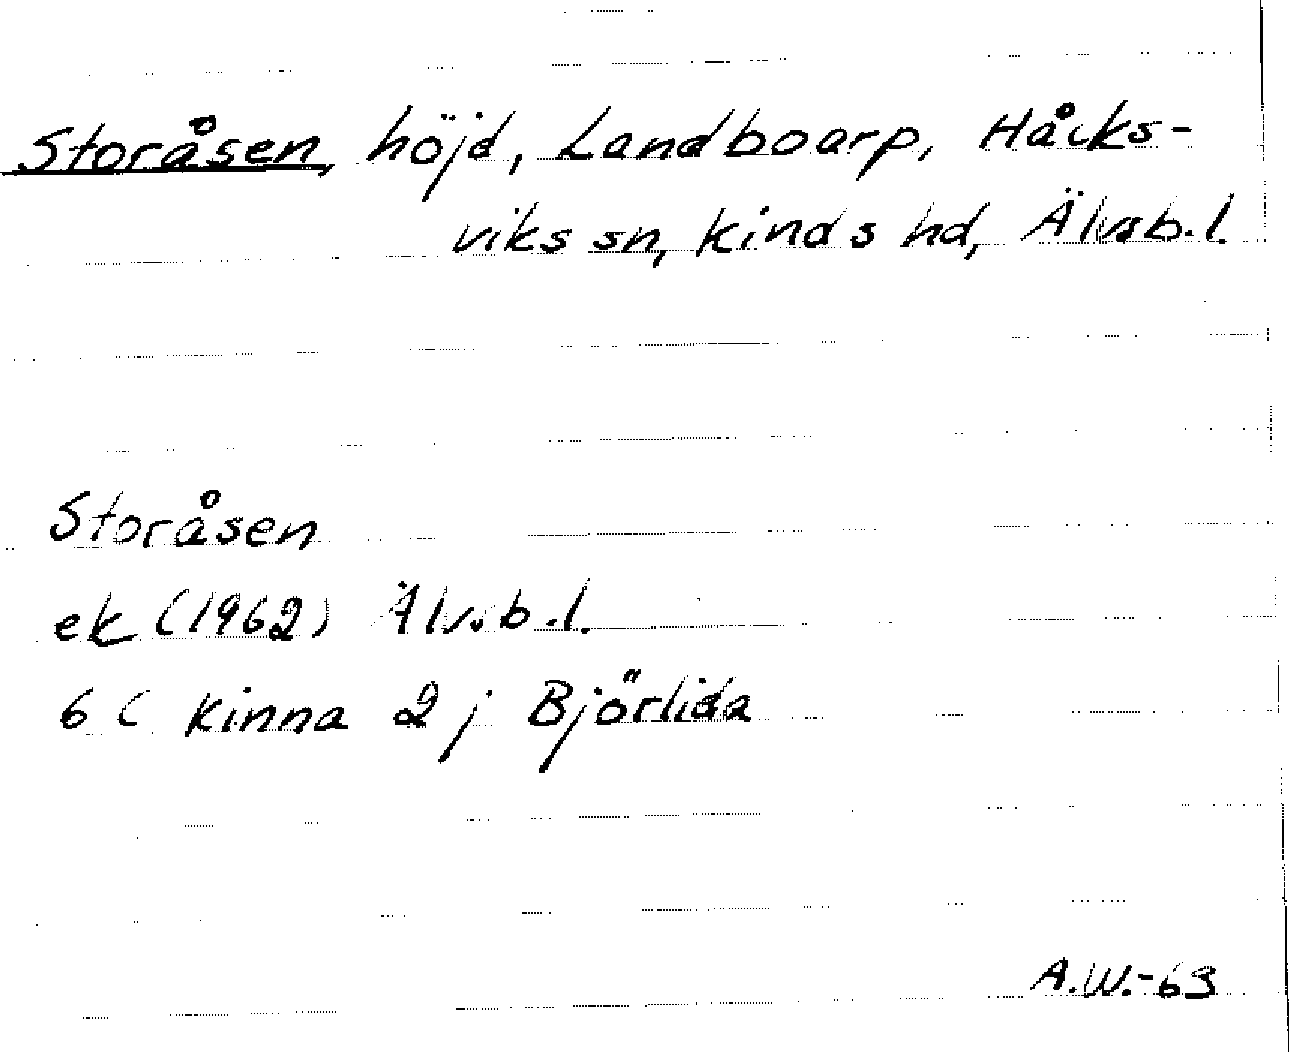 Storåsen, höjd, Landboarp, Håcks-
viks sn, Kinds hd, Älvsb.l.
Storåsen
ek (1962) Älvsb.l.
6 C Kinna 2 j Björlida
A.W.-63